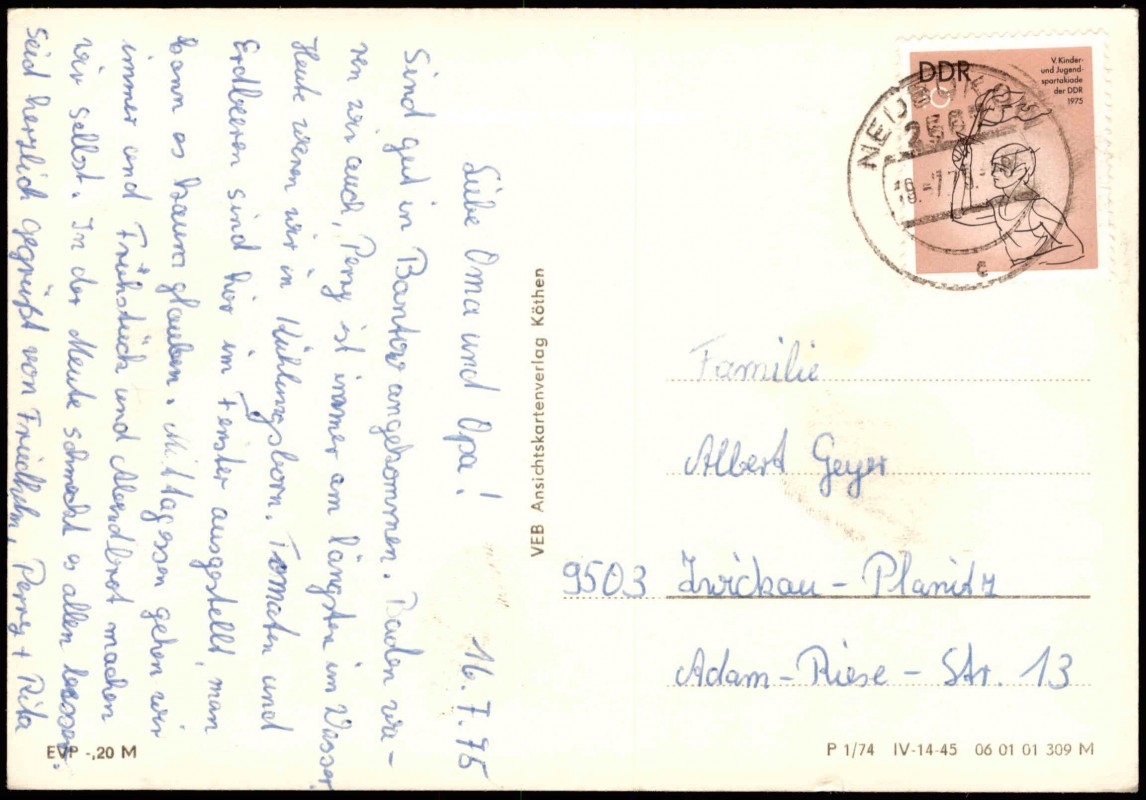 Liebe Oma und Opa! 16.7.75
Sind gut in Bantow angekommen. Baden wa-
ren wir auch, Perry ist immer am längsten im Wasser.
Heute waren wir in Kühlungsborn. Tomaten und
Erdbeeren sind hier im Fenster ausgestellt, man
kann es kaum glauben. Mittagessen gehen wir
immer und Frühstück und Abendbrot machen
wir selbst. In der Meute schmeckt es allen besser.
Seid herzlich gegrüßt von Friedhelm, Perry + Rita
EVP -,20 M
VEB Ansichtskartenverlag Köthen
DDR
V. Kinder-
und Jugend-
spartakiade
der DDR
1975
Familie
Albert Geyer
9503 Zwickau - Planitz
Adam - Riese - Str. 13
P 1/74 IV-14-45 06 01 01 309 M